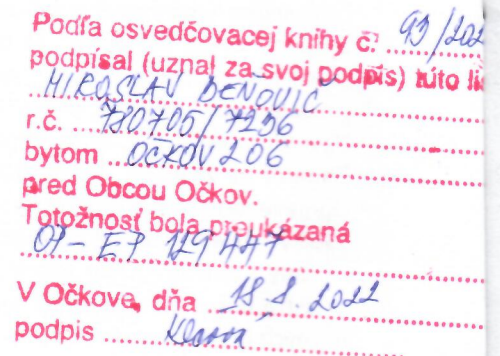 Podľa osvedčovacej knihy č. 93/202
podpísal (uznal za svoj podpis) túto li
MIROSLAV DEŇOVIČ
r.č. 780705/7296
bytom OČKOV 206
pred Obcou Očkov.
Totožnosť bola preukázaná
OP - EP 129447
V Očkove, dňa 18.8.2022
podpis